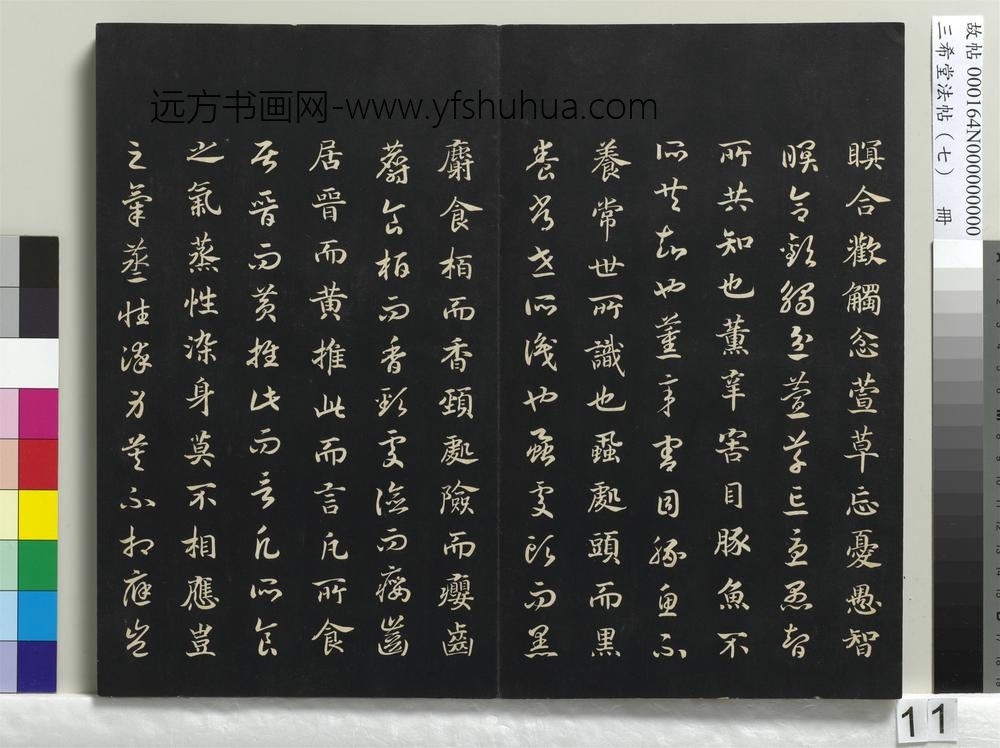 瞑合歡觸忿萱草忘憂愚智
瞑合歡觸忿萱草忘憂愚智
所共知也薰辛害目豚魚不
所共知也薰辛害目豚魚不
養常世所識也蝨處頭而黑
養常世所識也蝨處頭而黑
麝食栢而香頸處險而癭齒
麝食栢而香頸處險而癭齒
居晉而黄推此而言凡所食
居晉而黄推此而言凡所食
之氣蒸性染身莫不相應豈
之氣蒸性染身莫不相應豈
远方书画网-www.yfshuhua.com
故帖 000164N000000000
三希堂法帖（七） 冊
11